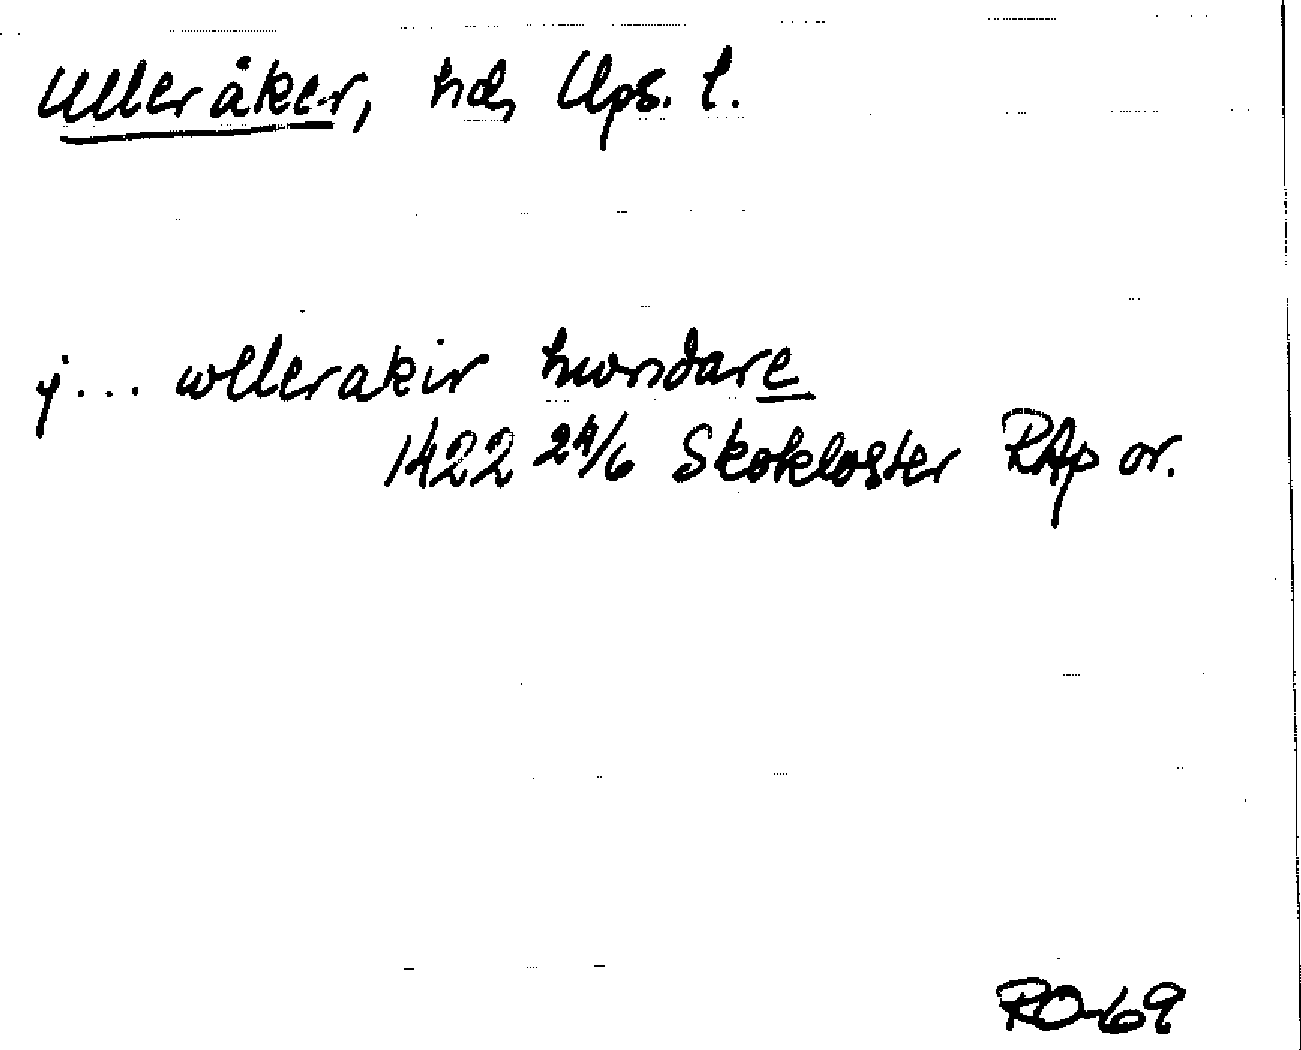 Ulleråker, hd, Ups. l.
j... wllerakir hwndare
1422 24/6 Skokloster RAp or.
RO-69